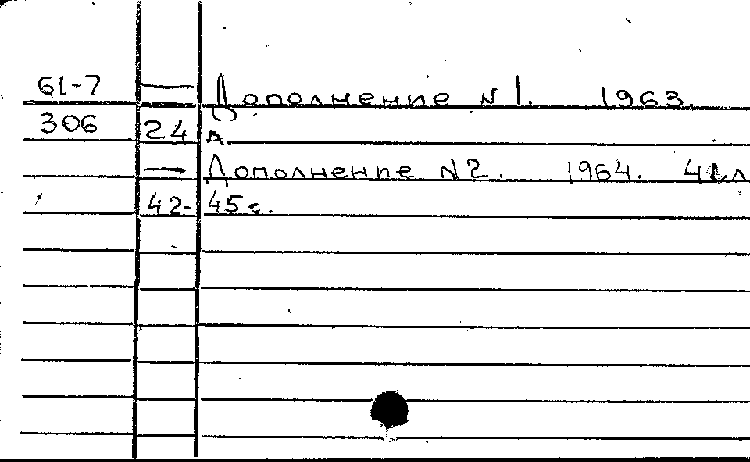 61-7 — Дополнение N1. 1963.
306 24 л.
— Дополнение N2. 1964. 41л
42- 45 с.